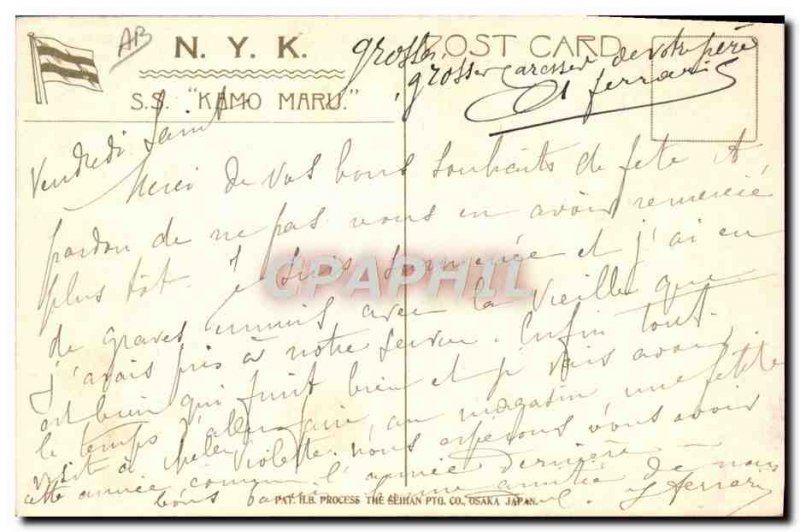 AB
N. Y. K.
S.S. "KAMO MARU."
POST CARD
grosses caresses de votre père
Ferrari
Vendredi Saint
Merci de vos bons souhaits de fête et
pardon de ne pas vous en avoir remercié
plus tôt. Je suis surmenée et j'ai eu
de graves ennuis avec la vieille que
j'avais pris à notre service. Enfin tout
est bien qui finit bien et je vais avoir
le temps d'aller faire, au magasin une petite
visite à Violette. nous espérons vous avoir
cette année comme l'année dernière
bons de nous
Ferrari
CPAPHIL
PAT. H.B. PROCESS THE SEIHAN PTG. CO., OSAKA JAPAN.